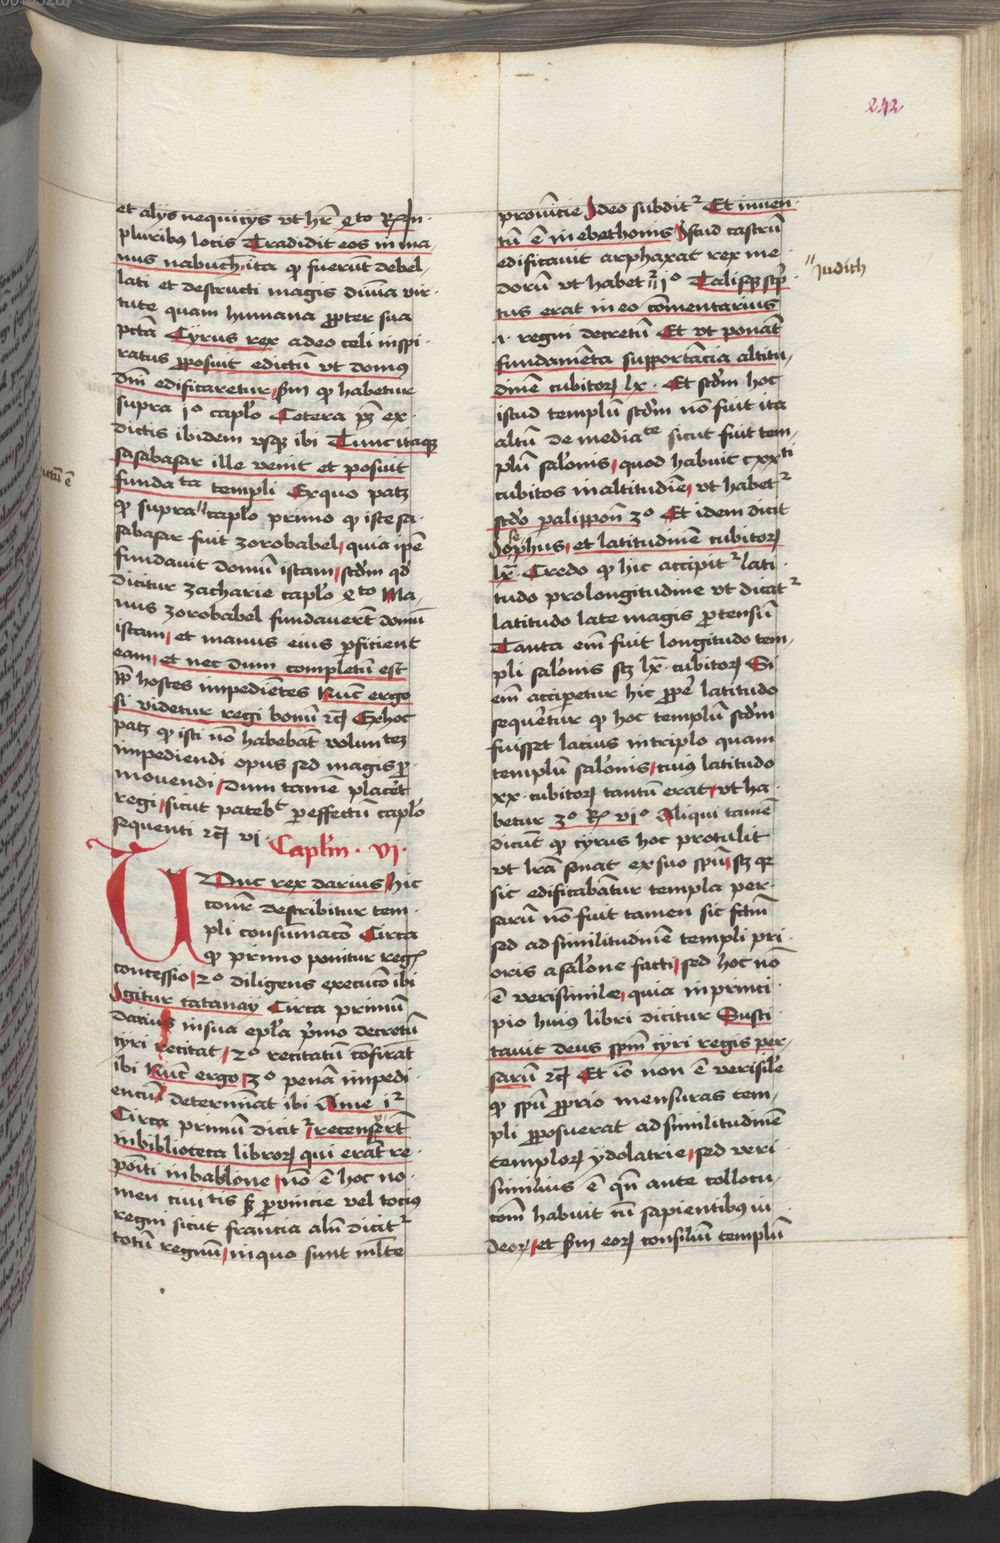 242
et alijs nequicijs vt hr̄ 4to Rꝫ In
pluribꝰ locis Tradidit eos in ma-
nus nabuch. ita ꝙ fuerūt debel-
lati et destructi magis diuīa vir-
tute quam humana ꝓpter sua
pctā Cyrus rex adeo celi inspi-
ratus ꝓposuit edictū vt domꝰ
dn̄i edificaretur, scdm ꝙ habetur
supra jo caplo Cetera pꝫ ex
dictis ibidem vsqꝫ ibi Tunc itaqꝫ
sasabasar ille venit et posuit
fundata templi Exquo patꝫ
ꝙ supra caplo primo ꝙ iste sa-
sabasar fuit zorobabel, quia ipē
fundauit domū istam, scdm qd
dicitur zacharie caplo 4to Ma-
nus zorobabel fundauerūt domū
istam, et manus eius ꝑficient
eam, et nec dum completū est
ꝓp hostes impediētes Nūc ergo
si videtur regi bonū ꝛcꝫ Ex hoc
patꝫ ꝙ isti nō habebāt voluntꝫ
impediendi opus sed magis ꝓ-
mouendi, dum tamē placeret
regi, sicut patebt per effectū caplo
sequenti ꝛcꝫ vi. Caplm. vi.
TUnc rex darius, hic
conr̄ describitur tem-
pli consumacō Circa
ꝙ primo ponitur regꝭ
concessio, 2o diligens execucō ibi
Igitur tatanay Circa primū
darius in sua epla p̄mo decretū
cyri recitat, 2o recitatū cōfirmat
ibi Nūc ergo, 3o penā impedi-
enciū determinat ibi A me iᷣ
Circa primū dicitᷣ, recenserūt
in biblioteca librorꝫ qui erāt re-
positi in bablone, nō ē hoc no-
men ciuitis sꝫ ꝓuincie vel tociꝰ
regni sicut francia aln̄ dicitᷣ
totū regnū, in quo sunt mlte
prouincie Ideo subditᷣ Et inuen-
tū ē in ebathonis Istud castrū
edificauit arphaxat rex me-
dorū vt habetᷣ jo Talisqꝫ scp-
tus erat in eo cōmentarius
.i. regni decretū Et vt ponāt
fundamēta supportācia altitu-
dinē cubitorꝫ lx. Et scdm hoc
istud templū scdm nō fuit ita
altū de mediate sicut fuit tem-
plū salonis, quod habuit cxxti
cubitos in altitudīe, vt habetᷣ
scdo palippon 3o Et idem dicit
Iosephus, et latitudinē cubitorꝫ
lx. Credo ꝙ hic accipitᷣ lati-
tudo pro longitudine vt dicatᷣ
latitudo late magis ꝓtensiū
Tanta em̄ fuit longitudo tem-
pli salonis scꝫ lx. cubitorꝫ Si
em̄ acciperetur hic ꝓpe latitudo
sequeretur ꝙ hoc templū scdm
fuisset lacius in triplo quam
templū salonis, cuiꝰ latitudo
xx. cubitorꝫ tantū erat, vt ha-
betur 3o Rꝫ vio Aliqui tamē
dicūt ꝙ cyrus hoc protulit
vt lr̄a sonat ex suo spū, scꝫ qꝛ
sic edificabantur templa per-
sarum nō fuit tamen sic fctm
sed ad similitudinē templi pri-
oris a salone facti, sed hoc nō
ē verisimile, quia in princi-
pio huiꝰ libri dicitur Susci-
tauit deus spm cyri regis per-
sarū ꝛcꝫ Et iō non ē verisile
ꝙ spū ꝓprio mensuras tem-
pli ꝓposuerat ad similitudinē
templorꝫ ydolatrie, sed veri-
similius ē qn̄ ante collocu-
com̄ habuit cū sapientibꝰ iu-
deorꝫ, et scdm eorꝫ consiliū templū
Judith